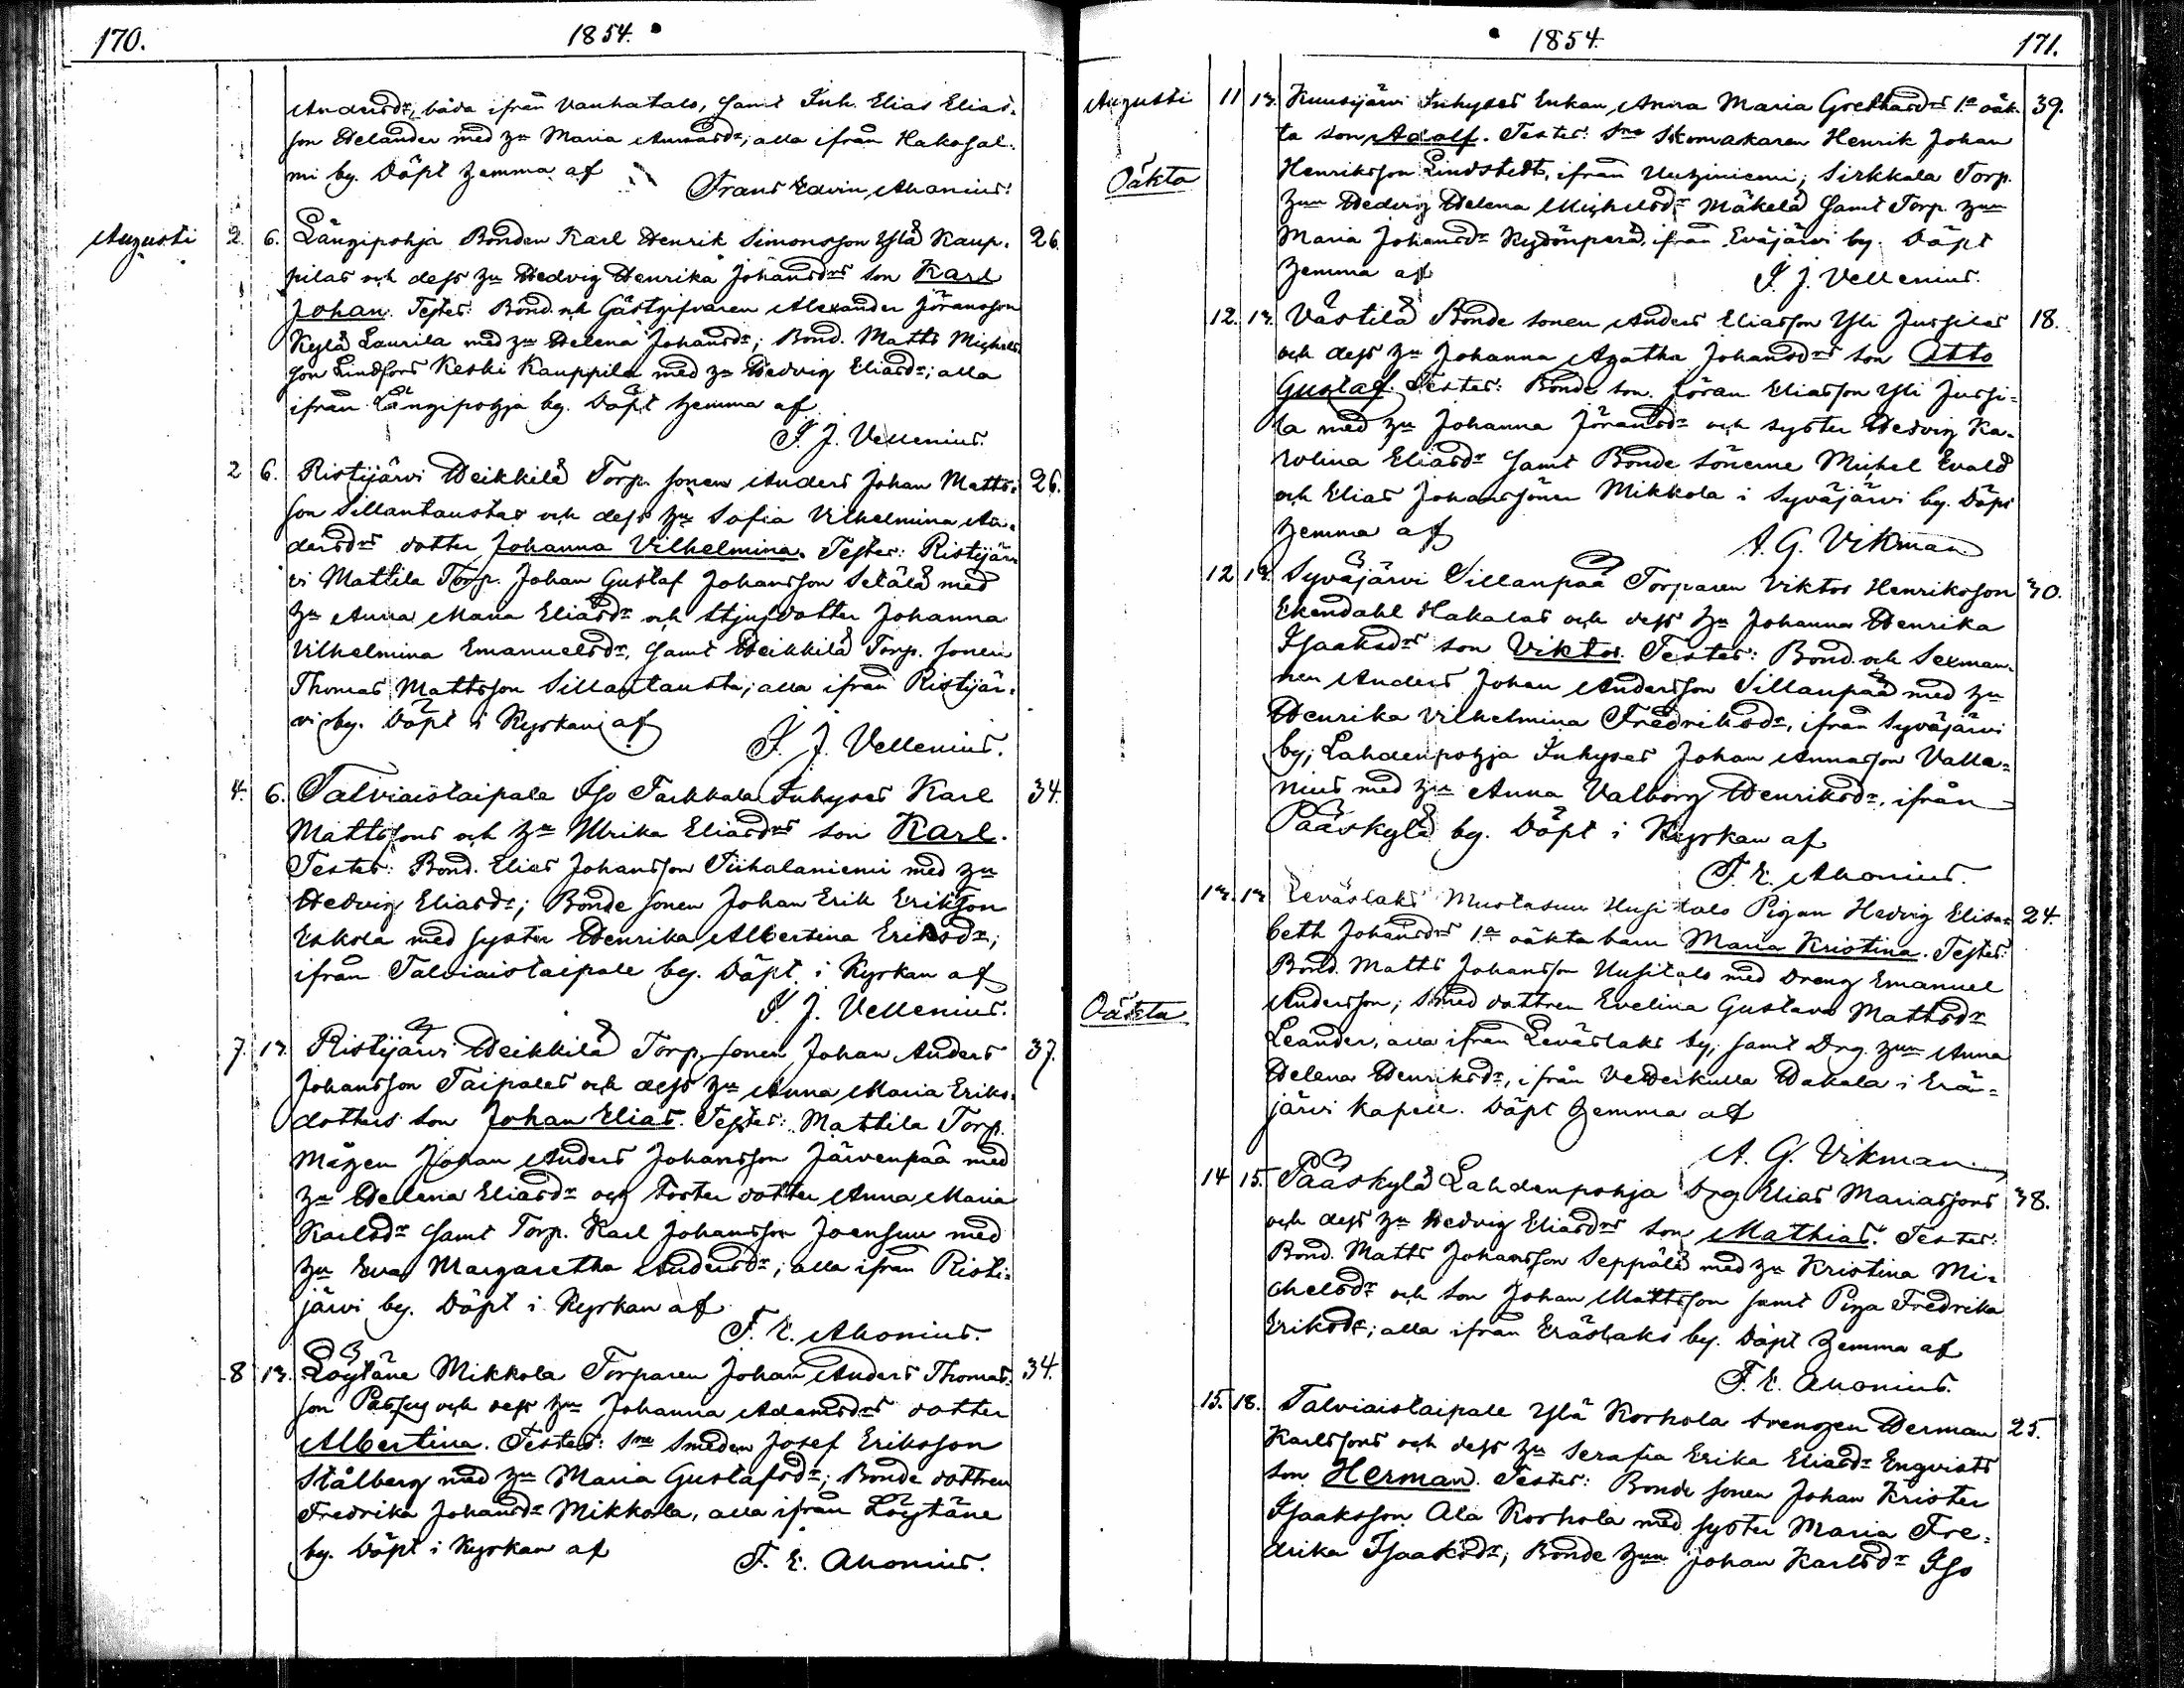 170.
1854.
Andersdr, båda ifrån Vanhatalo, samt Inh. Elias Elias-
son Helander med hu Maria Annasdr; alla ifrån Hakosal-
mi by. Döpt hemma af
Frans Edvin Ahonius.
Augusti 2. 6. Längipohja Bonden Karl Henrik Simonsson Ylä Kaup- 26.
pilas och dess hu Hedvig Henrika Johansdrs son Karl
Johan. Testes: Bond. och Gästgifvaren Alexander Jöransson
Kylä Laurila med hu Helena Johansdr; Bond. Matts Michels
son Lindfors Keski Kauppila med hu Hedvig Eliasdr; alla
ifrån Längipohja by. Döpt hemma af
I. J. Vellenius.
2 6. Ristijärvi Heikkilä Torp. sonen Anders Johan Matts- 26.
son Sillantaustas och dess hu Sofia Vilhelmina An-
dersdrs dotter Johanna Vilhelmina. Testes: Ristijär-
vi Mattila Torp. Johan Gustaf Johansson Setälä med
hu Anna Maria Eliasdr och stjufdotter Johanna
Vilhelmina Emanuelsdr, samt Heikkilä Torp. sonen
Thomas Mattsson Sillantausta; alla ifrån Ristijär-
vi by. Döpt i Kyrkan af
I. J. Vellenius.
4. 6. Talviaistaipale Iso Tarkkala Inhyses Karl 34.
Mattssons och hu Ulrika Eliasdrs son Karl.
Testes: Bond. Elias Johansson Tiihalaniemi med hu
Hedvig Eliasdr; Bonde sonen Johan Erik Eriksson
Eskola med syster Henrika Albertina Eriksdr;
ifrån Talviaistaipale by. Döpt i Kyrkan af
I. J. Vellenius.
7. 13. Ristijärvi Heikkilä Torp. sonen Johan Anders 37.
Johansson Taipales och dess hu Anna Maria Eriks-
dotters son Johan Elias. Testes: Mattila Torp.
mågen Johan Anders Johansson Järvenpää med
hu Helena Eliasdr och foster dotter Anna Maria
Karlsdr samt Torp. Karl Johansson Joensuu med
hu Eva Margaretha Andersdr; alla ifrån Risti-
järvi by. Döpt i Kyrkan af
F. E. Ahonius.
8 13. Löytäne Mikkola Torparen Johan Anders Thomas- 34.
son och dess hu Johanna Adamsdrs dotter
Albertina. Testes: Sne Smeden Josef Eriksson
Stålberg med hu Maria Gustafsdr; Bonde dottren
Fredrika Johansdr Mikkola, alla ifrån Löytäne
by. Döpt i Kyrkan af
F. E. Ahonius.
1854.
171.
Augusti 11 13. Kuusijärvi Inhyses Enkan Anna Maria Grethasdrs 1a oäk- 39.
ta son Adolf. Testes: Sne Skomakaren Henrik Johan
Oäkta Henriksson Lindstedt, ifrån Uuhiniemi; Sirkkala Torp.
hun Hedvig Helena Michelsdr Mäkelä samt Torp. hun
Maria Johansdr Kydönperä, ifrån Eväjärvi by. Döpt
hemma af
I. J. Vellenius.
12. 13. Västilä Bonde sonen Anders Eliasson Yli Jussilas 18.
och dess hu Johanna Agatha Johansdrs son Otto
Gustaf. Testes: Bonde son. Jöran Eliasson Yli Jussi-
la med hu Johanna Jöransdr och syster Hedvig Ka-
rolina Eliasdr samt Bonde sönerne Michel Evald
och Elias Johanssöner Mikkola i Syväjärvi by. Döpt
hemma af
A. G. Vikman
12 13. Syväjärvi Sillanpää Torparen Viktor Henriksson 30.
Ekendahl Hakalas och dess hu Johanna Henrika
Isaaksdrs son Viktor. Testes: Bond. och Sexman-
nen Anders Johan Andersson Sillanpää med hu
Henrika Vilhelmina Fredriksdr, ifrån Syväjärvi
by; Lahdenpohja Inhyses Johan Annasson Valle-
nius med hu Anna Valborg Henriksdr, ifrån
Pääskylä by. Döpt i Kyrkan af
F. E. Ahonius.
13. 13. Leväslaks Mustasuu Uusitalo Pigan Hedvig Elisa- 24.
beth Johansdrs 1a oäkta barn Maria Kristina. Testes:
Bond. Matts Johansson Uusitalo med Dreng Emanuel
Oäkta Andersson; Smed dottren Evelina Gustava Mattsdr
Leander, alla ifrån Leväslaks by; samt Drg. hun Anna
Helena Henriksdr, ifrån Vedenkulla Hakala i Erä-
järvi Kapell. Döpt hemma af
A. G. Vikman.
14 15. Pääskylä Lahdenpohja Drg Elias Mariassons 38.
och dess hu Hedvig Eliasdrs son Mathias. Testes:
Bond. Matts Johansson Seppälä med hu Kristina Mi-
chelsdr och son Johan Mattsson samt Piga Fredrika
Eriksdr; alla ifrån Eräslaks by. Döpt hemma af
F. E. Ahonius.
15. 18. Talviaistaipale Ylä Korhola Drengen Herman 25.
Karlssons och dess hu Serafia Erika Eliasdr Enqvists
son Herman. Testes: Bonde sonen Johan Krister
Isaaksson Ala Korhola med syster Maria Fre-
drika Isaaksdr; Bonde hun Johan Karlsdr Iso